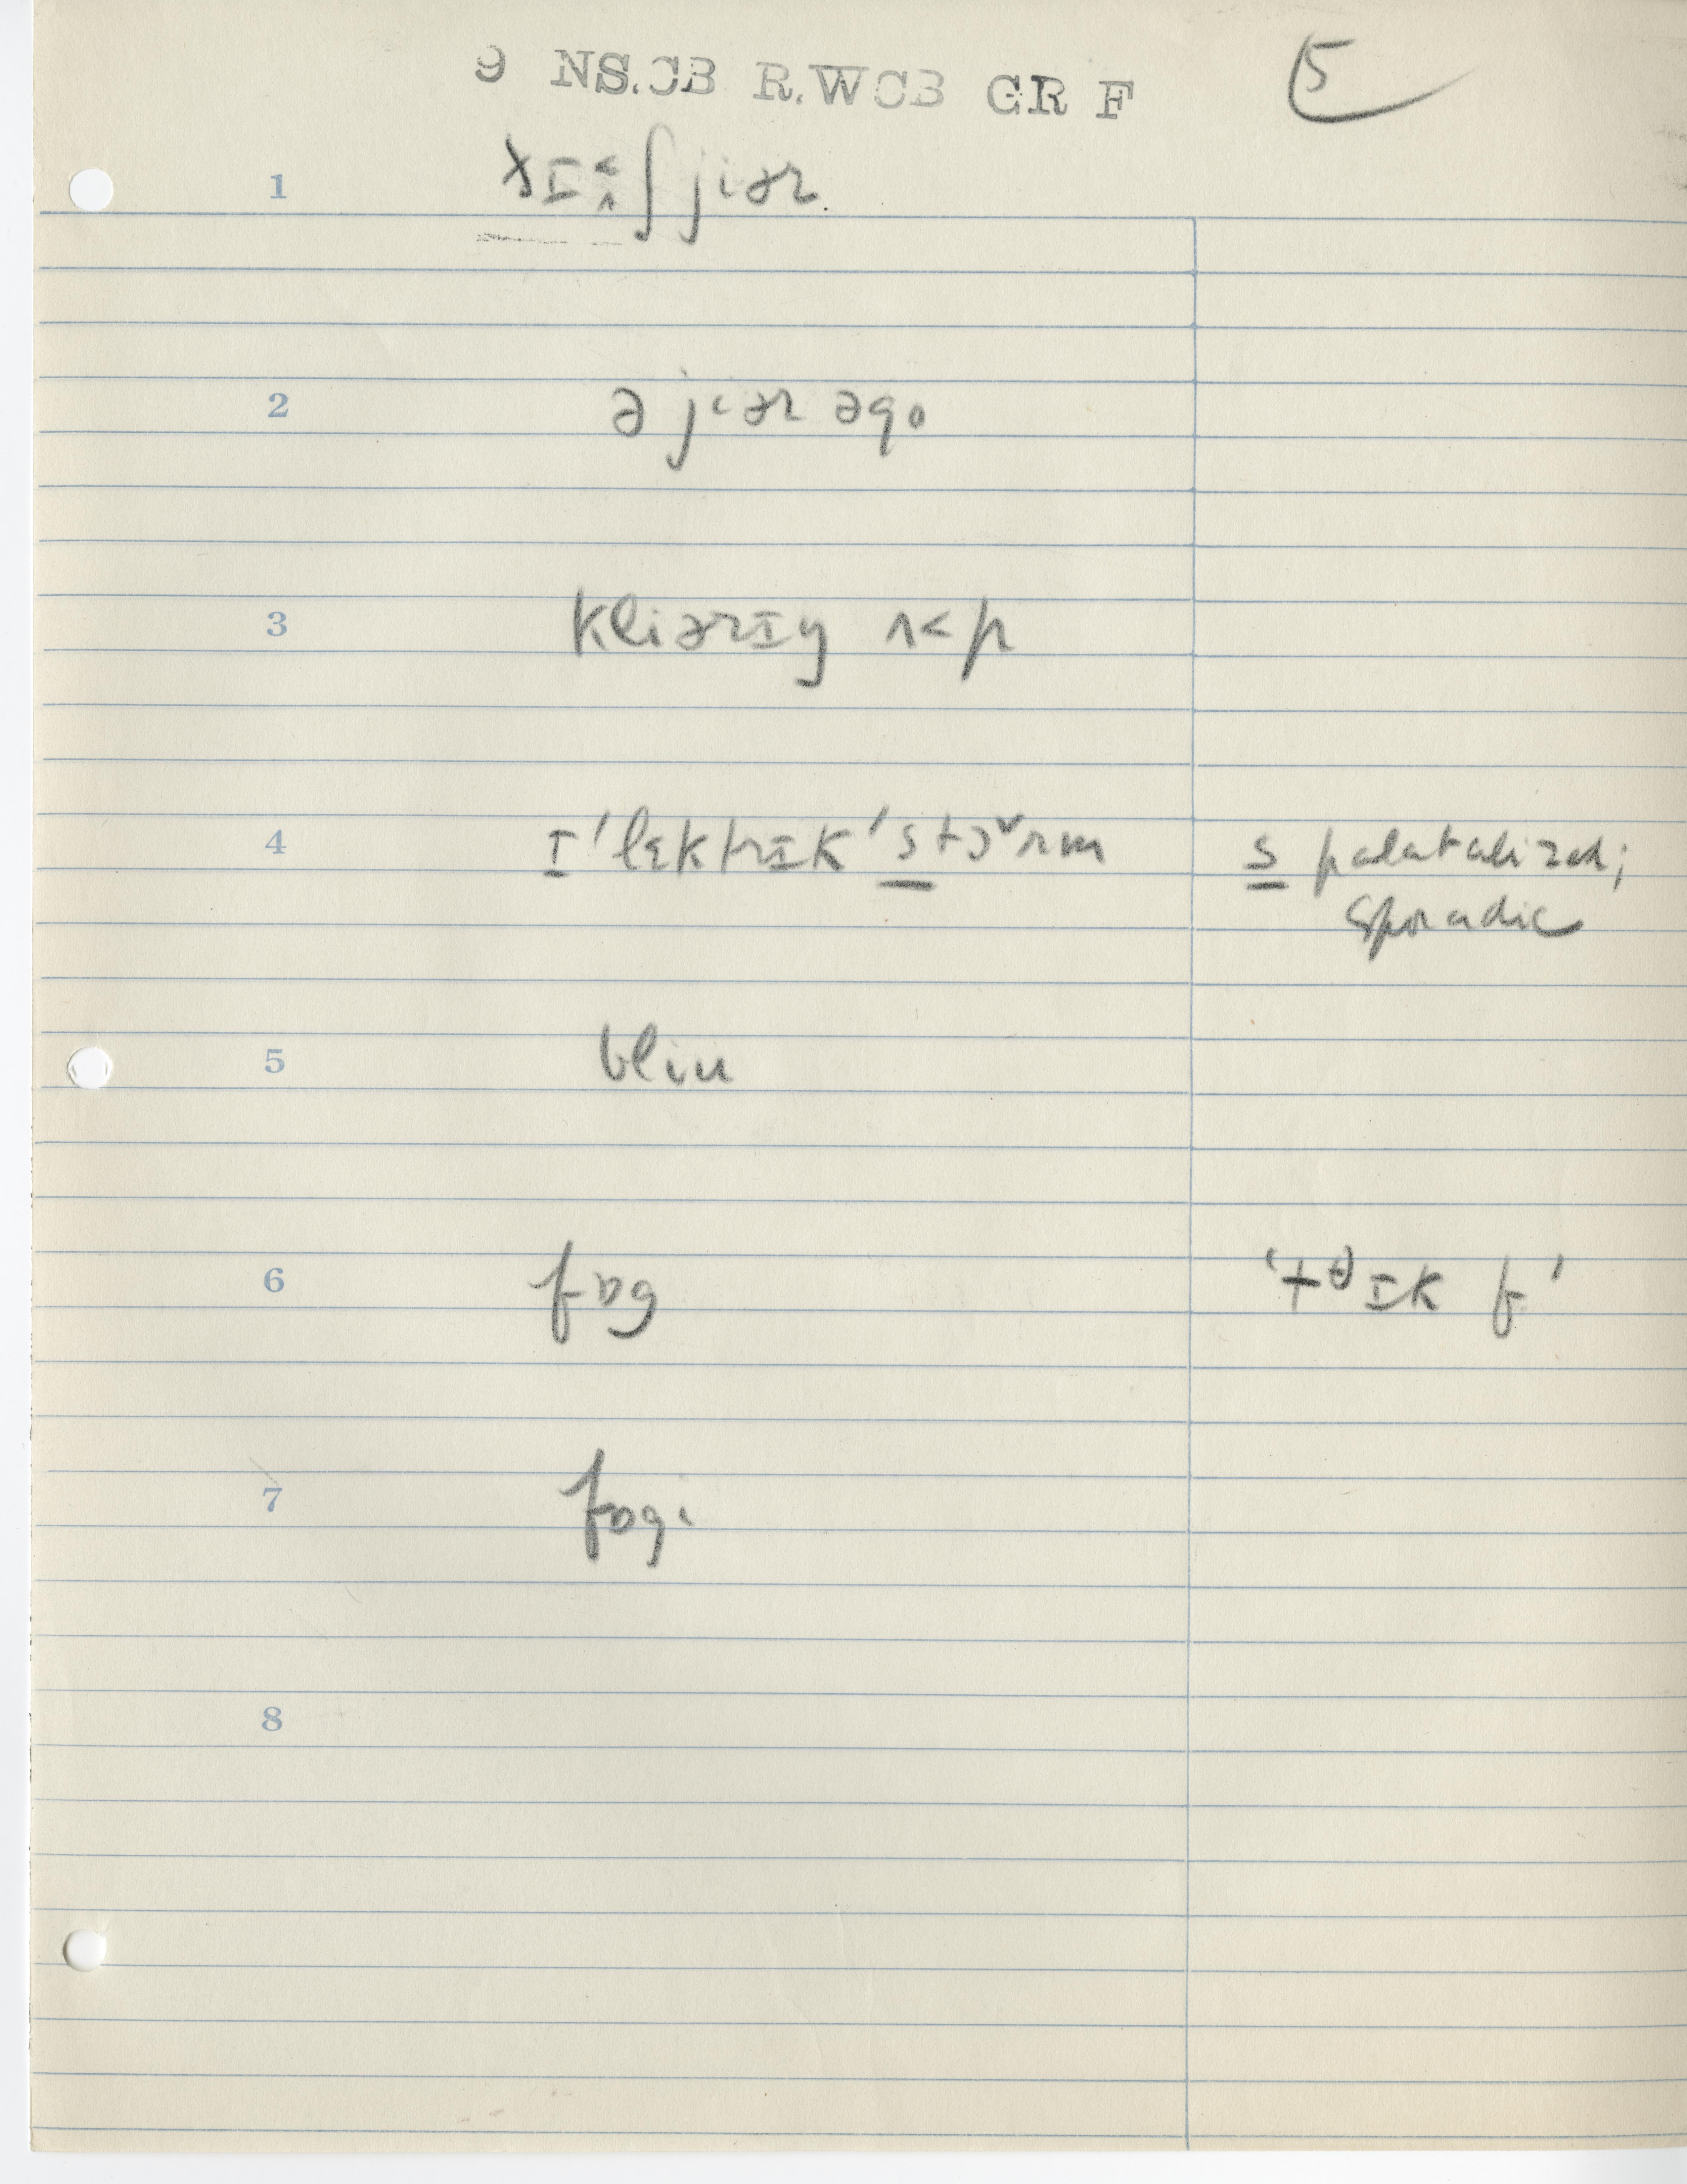 9 NS.CB R.WCB GR F 5
1 ðɪ^<ʃ jiər
2 ə jiər əgo
3 kliərɪŋ ʌ<p
4 ɪ'lɛktrɪk'stɔˇrm s palatalized;
sporadic
5 bliu
6 fɒg 'tθɪk f'
7 fɒgi
8